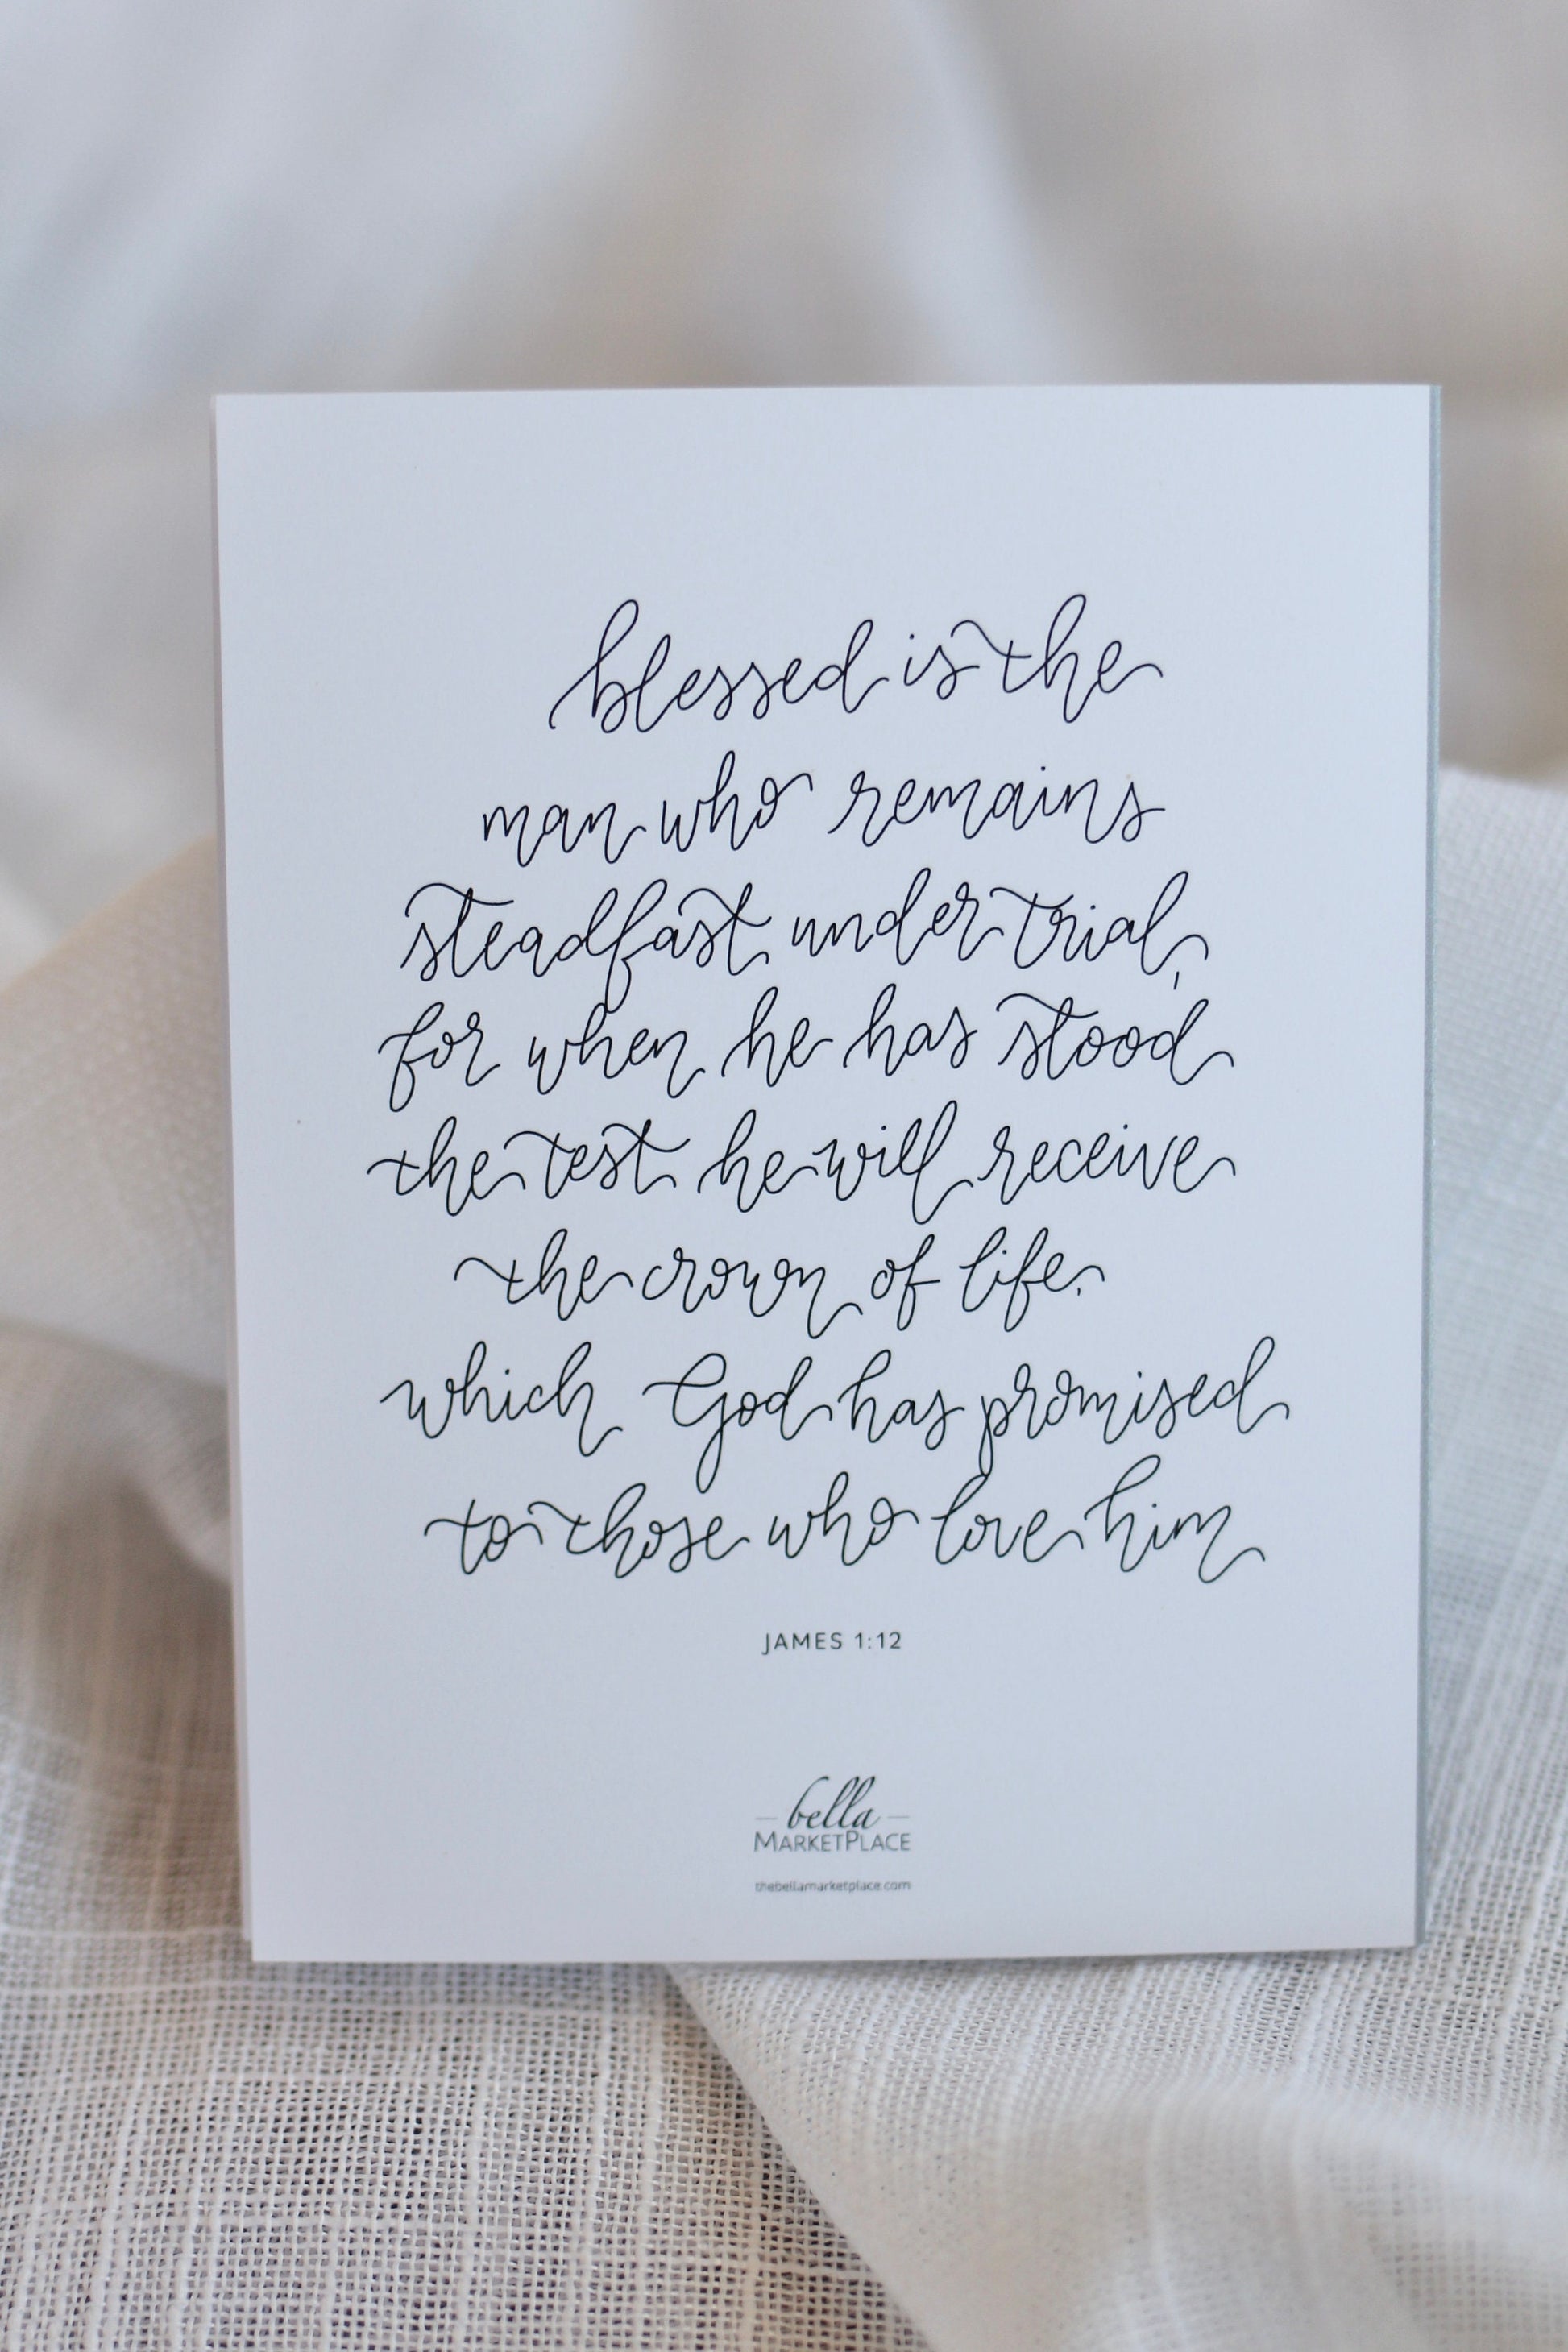 blessed is the
man who remains
steadfast under trial,
for when he has stood
the test he will receive
the crown of life.
which God has promised
to those who love him
JAMES 1:12
bella
MARKETPLACE
thebellamarketplace.com